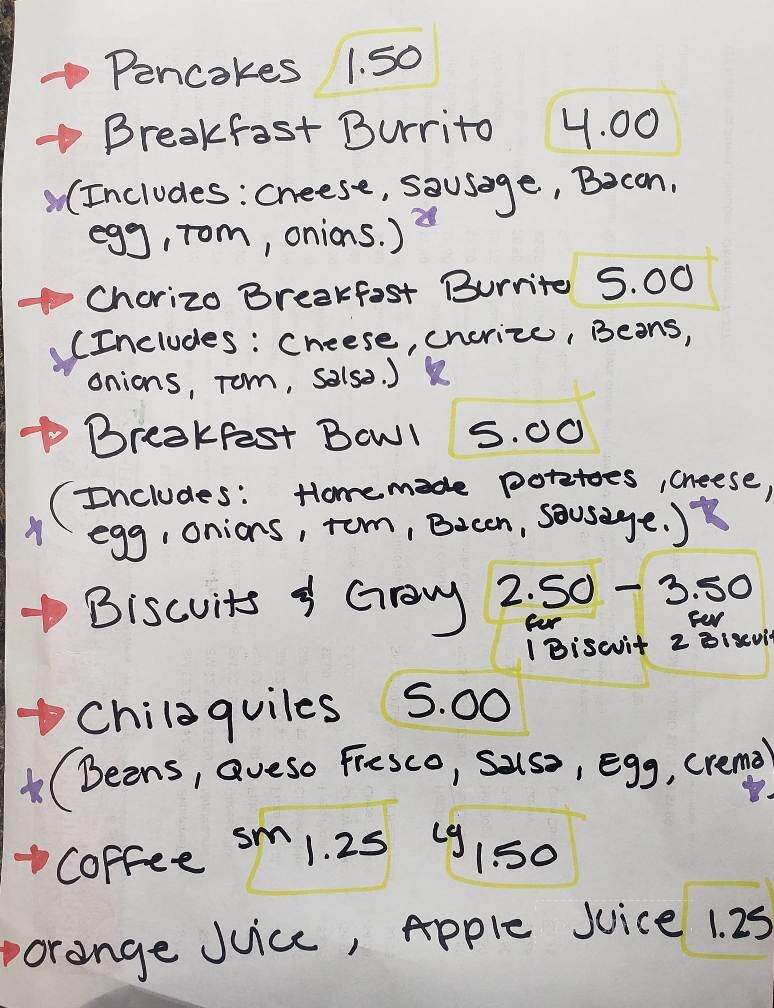 Pancakes 1.50
Breakfast Burrito 4.00
(Includes: Cheese, Sausage, Bacon,
egg, Tom, onions.)
Chorizo Breakfast Burrito 5.00
(Includes: Cheese, chorizo, Beans,
onions, Tom, Salsa.)
Breakfast Bowl 5.00
(Includes: Homemade potatoes, cheese,
egg, onions, tom, Bacon, Sausage.)
Biscuits & Gravy 2.50 - 3.50
for for
1 Biscuit 2 Biscuit
Chilaquiles 5.00
(Beans, Queso Fresco, Salsa, Egg, crema)
Coffee sm 1.25 Lg 1.50
orange Juice, Apple Juice 1.25